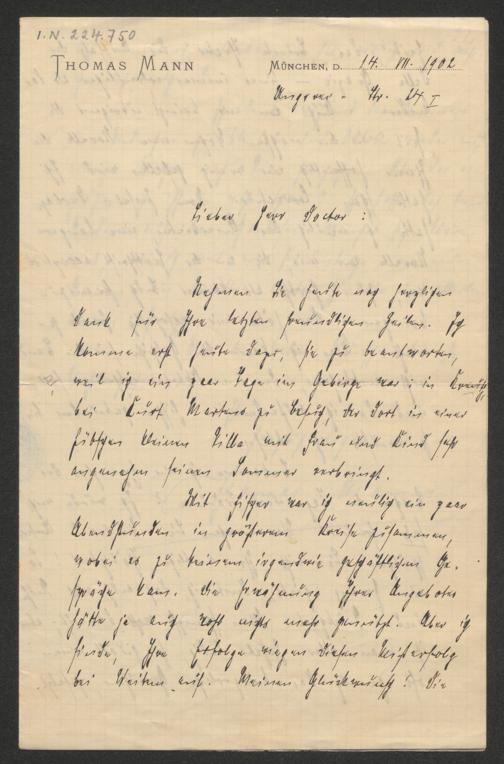 I.N. 224.750
THOMAS MANN
MÜNCHEN, D. 14. VII. 1902
Ungerer-Str. 24 I
Lieber Herr Doctor:
Nehmen Sie heute noch herzlichen
Dank für Ihre letzten freundlichen Zeilen. Ich
komme erst heute dazu, sie zu beantworten,
weil ich ein paar Tage im Gebirge war: in Kreuth,
bei Kurt Martens zu Besuch, der dort in einer
hübschen kleinen Villa mit Frau und Kind sehr
angenehm seinen Sommer verbringt.
Mit war ich neulich ein paar
Abendstunden in größerem Kreise zusammen,
wobei es zu keinem irgendwie geschäftlichen Ge-
spräch kam. Die Erwähnung Ihres Angebotes
hätte ja auch wohl nichts mehr genützt. Aber ich
finde, Ihre Erfolge wiegen diesen Mißerfolg
bei Weitem auf. Meinen Glückwunsch! Die